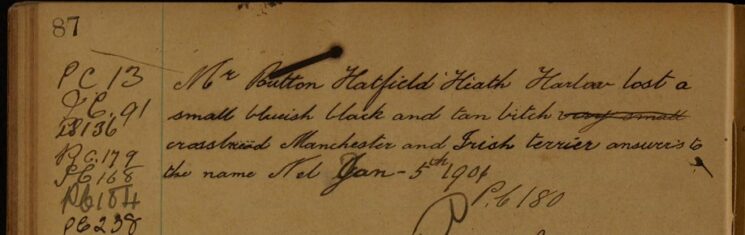 87
PC 13
P.C. 91
PS 136
P.C. 179
P.C 168
PC 184
PC 238
Mr Button Hatfield Heath Harlow lost a
small blueish black and tan bitch very small
crossbried Manchester and Irish terrier answers to
the name Nel Jan - 5th 1901
P.C 180